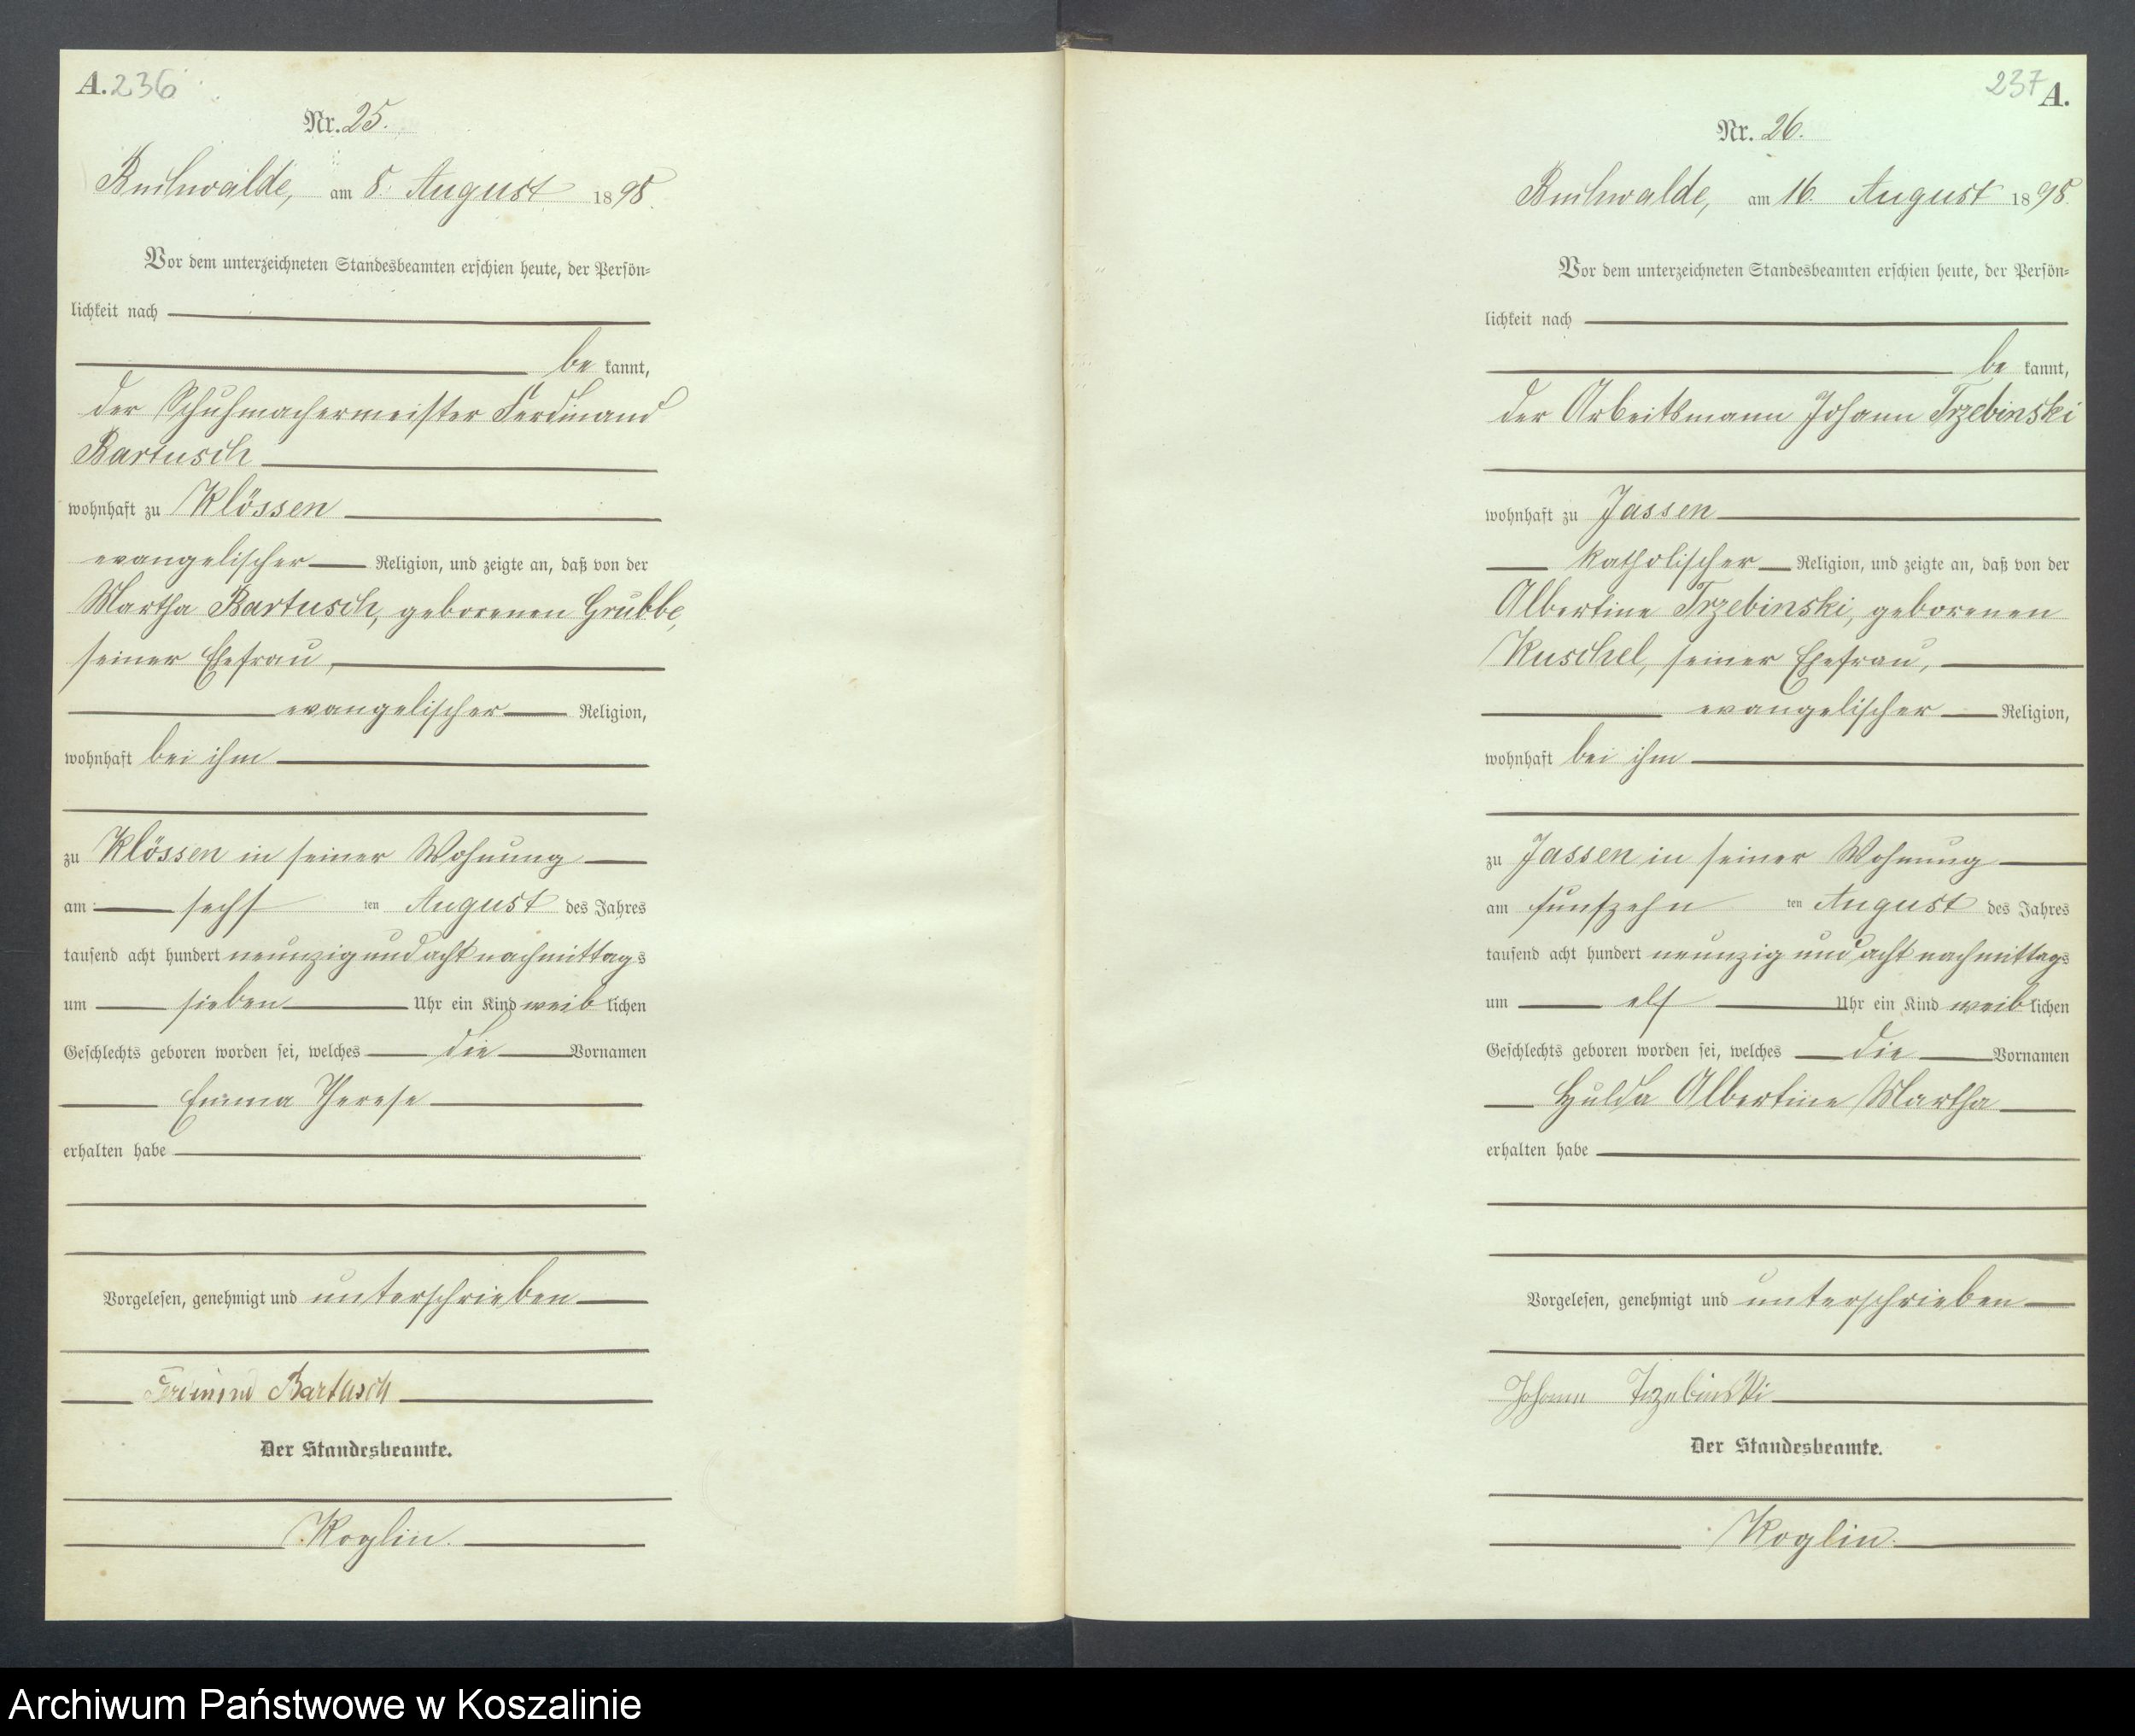 A. 236
Nr. 25.
Buchwalde, am 8. August 1898.
Vor dem unterzeichneten Standesbeamten erschien heute, der Persön-
lichkeit nach
be kannt,
der Schuhmachermeister Ferdinand
Bartusch
wohnhaft zu Klössen
evangelischer Religion, und zeigte an, daß von der
Martha Bartusch, geborenen Grubbe,
seiner Ehefrau,
evangelischer Religion,
wohnhaft bei ihm
zu Klössen in seiner Wohnung
am sechs ten August des Jahres
tausend acht hundert neunzig und acht nachmittags
um sieben Uhr ein Kind weiblichen
Geschlechts geboren worden sei, welches die Vornamen
Emma Therese
erhalten habe
Vorgelesen, genehmigt und unterschrieben
Bartusch
Der Standesbeamte.
Koglin.
237 A.
Nr. 26.
Buchwalde, am 16. August 1898.
Vor dem unterzeichneten Standesbeamten erschien heute, der Persön-
lichkeit nach
be kannt,
der Arbeitsmann Johann Trzebinski
wohnhaft zu Jassen
katholischer Religion, und zeigte an, daß von der
Albertine Trzebinski, geborenen
Kuschel, seiner Ehefrau,
evangelischer Religion,
wohnhaft bei ihm
zu Jassen in seiner Wohnung
am funfzehn ten August des Jahres
tausend acht hundert neunzig und acht nachmittags
um elf Uhr ein Kind weiblichen
Geschlechts geboren worden sei, welches die Vornamen
Hulda Albertine Martha
erhalten habe
Vorgelesen, genehmigt und unterschrieben
Johann Trzebinski
Der Standesbeamte.
Koglin.
Archiwum Państwowe w Koszalinie